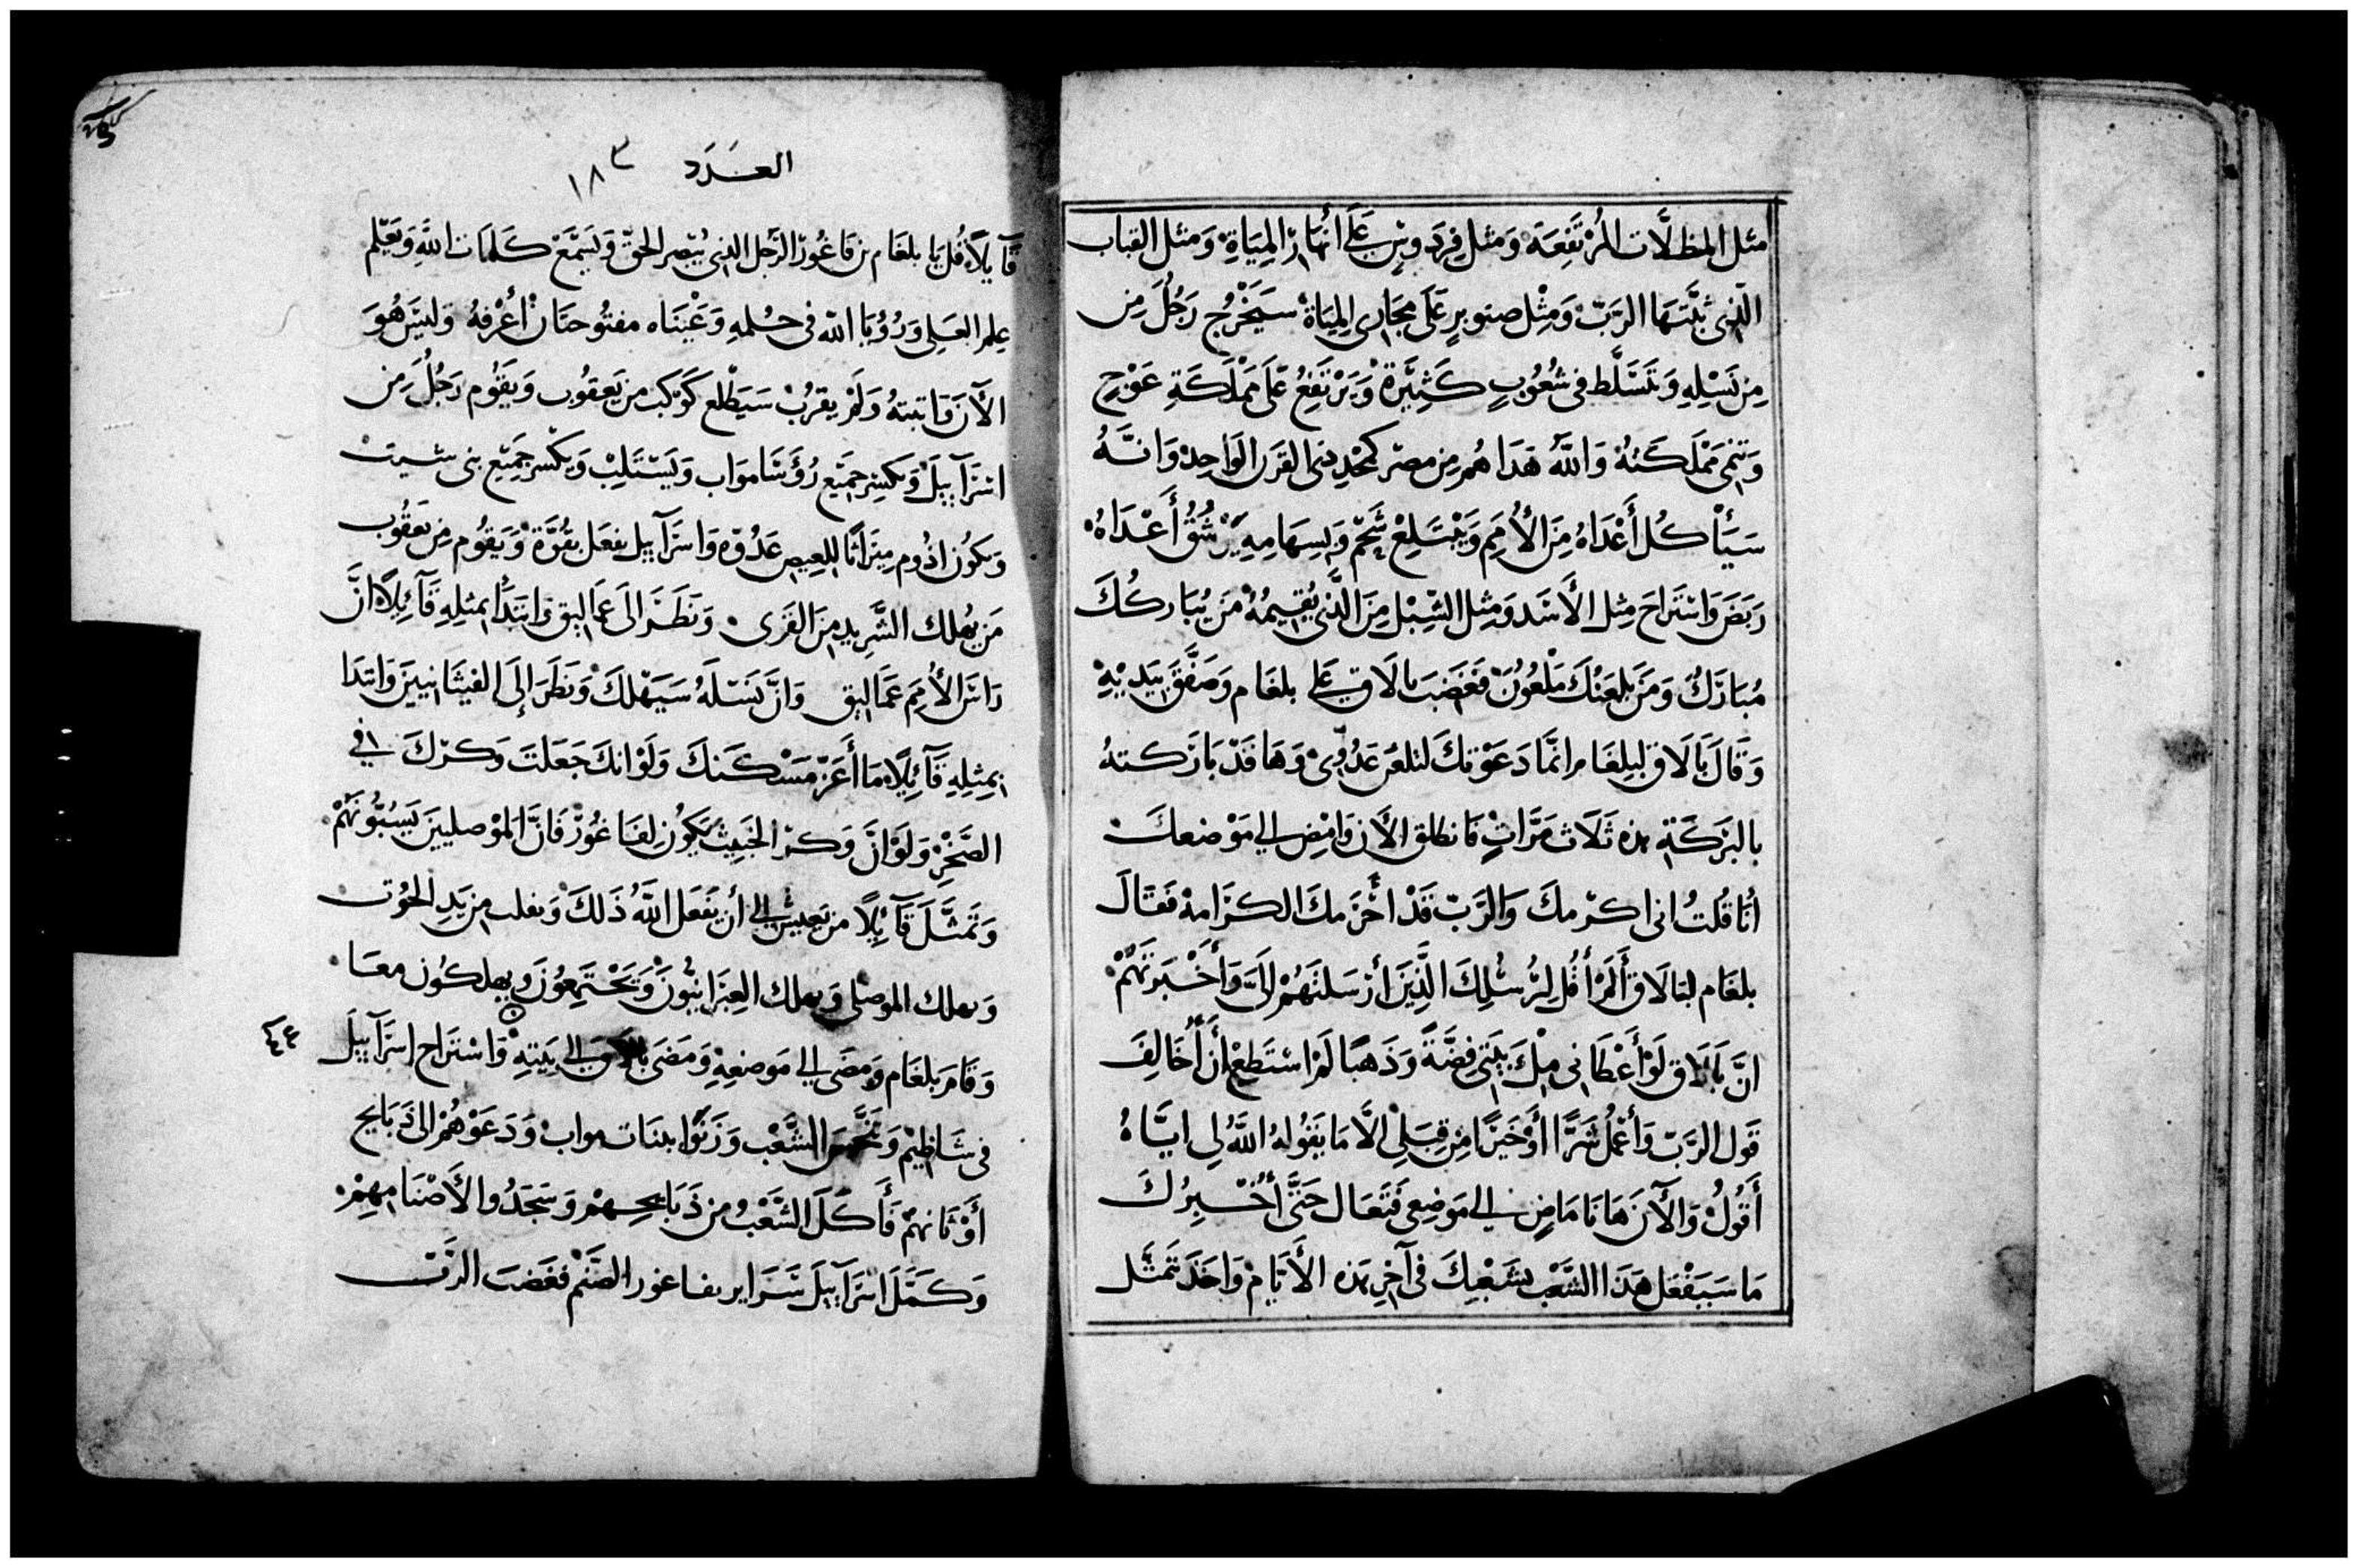 مثل المظلَّات المُرتَفِعَة وَمثل فِردَوسٍ عَلَى أنهار المِيَاة وَمثل القباب
الّذى ثبَّتَهَا الرَبّ وَمِثْل صنوبرٍ عَلَى مجَارى المِيَاة سَيَخْرُج رَجُلٌ مِن
مِن نَسْلِهِ وَيتَسَّلَط فى شُعُوبٍ كَثِيَرة وَيَرْتَفِعُ عَلَى مَمْلَكَةِ عَوْجٍ
وَتنمى مَمْلَكَتهُ وَاللَّه هَدَاهُم مِن مصر كمَجْدِ ذى القَرن الوَاحِد وَانَّهُ
سَيَأْكُل أَعْدَاهُ مِنَ الأُمَمِ وَيَبْتَلِعْ شَحْمَهُم وَبِسِهَامِهِ يَرْشُقُ أَعْدَاهُ
رَبَضَ وَاسْتَرَاحَ مِثل الأَسَد وَمِثل الشِبْل مِنَ الَّذى يُقِيمُهُ مَن يُبَاركُكَ
مُبَارَكٌ وَمَن يلعَنْكَ مَلْعُونٌ فَغَضبَ بالَاق عَلَى بلغَام وَصَفَّقَ بِيَديْهِ
وَقَالَ بَالَاق لبلغَام انَّمَا دَعَوْتكَ لتلعَن عَدُوِّى وَهَا قَدْ بَارَكتهُ
بالبَرَكَةِ هذه ثَلَاث مَرَّاتٍ فَانطلق الأَن وَامْضِ إلى مَوْضعكَ
أنَا قُلتُ انى اكرّمكَ وَالرَبّ قَدْ احْرَمكَ الكرَامة فَقَالَ
بلغَام لبَالَاق أَلَمْ أَقُل لِرُسُلِكَ الَّذِينَ أرْسَلتَهُمْ إلَىَّ وَأَخْبَرتَهُمْ
انَّ بَالَاق لَوْ أَعْطَانى مِلْىَ بَيْتَهِ فِضَّةً وَذَهَبًا لَمْ اسْتَطِعْ أَنْ أُخَالِفَ
قَول الرَبّ وَأَعْمَلُ شَرًّا أَوْ خَيرًا مِنْ قِبَلِى الَّا مَا يَقُولهُ اللَّهُ لى ايَّاهُ
أَقُولُ وَالآنَ هَانَا مَاضٍ إلى مَوَضِعى فَتَعَال حَتَّى أُخْبِرُكَ
مَا سَيَفْعَل هَذَا الشَّعْب بشَعْبِكَ فى آخِرِ هذه الأَيَّام وَاخذَ تَمثَّل
العَدَد ١٨٣
قَآيلًا قُل يَا بلغَام بن فَاعُور الرَجُل الذى يُبْصر الحَقّ وَيَسْمَعْ كَلمَات اللَّه وَيَعْلم
عِلم العَلِى وَرُؤْيَا اللّه فى حُلمهِ وَعَيْنَاه مفتُوحتَان أعْرفهُ وَليسَ هُوَ
الآنَ وَاتبتهُ وَلَمْ يقرُبْ سَيَطْلع كَوكَب من يَعقوُب وَيَقوُم رَجُلٌ مِن
اسْرَآييل وَيكسِر جَميَع رُؤَسَا مواب وَيَسْتَلِبْ وَيكْسر جَمِيَع بنى شيث
وَيكوُن ادُوم مِيَراثًا للعِيص عَدُوّه وَاسرَآييل يفعَل بقُوَّة وَيَقوُم مِن يَعقُوب
مَن يهلك الشَّريد مِنَ القرَى وَنَظَرَ إلَى عمَاليق وَابْتَدَا بمثلِهِ قَآئلًا انَّ
رَاسَ الأُمَم عَمَاليق وَانَّ نَسْلَهُ سَيَهْلكَ وَنَظَرَ إلَى القينَانِيينَ وَابتَدَا
بمِثِلِهِ قَآئِلًا مَا أعَزّ مَسْكَنكَ وَلَوْ انكَ جَعَلتَ وَكرّكَ فى
الصَخْرِ وَلَوَانَّ وَكرّ الخَبِيث يَكُون لفَاغُورْ فَانَّ المَوْصلييَنَ يَسْبُّونَهُمْ
وَتَمثَّلَ قَآئِلًا من يَعيش إلى أن يَفعَل اللَّهُ ذَلكَ وَيفلت مِن يَدِ الحُوت
وَيهلك الموصلى وَيهلك العِبَرانيُّونَ وَيَجْتَمِعُونَ وَيهلكُون معَا
وَقَامَ بلغَام وَمَضَى إلى مَوضعِهِ وَمَضَى بالاق إلى بَيتِهْ وَاسْتَرَاح اسرَآييلَ
فى شَاظِيْم وَتَنَجَّسَ الشَّعْب وَزَنَوْا ببنَات مواب وَدَعَوْهُمْ إلى ذَبَايح
أَوْثَانهمْ فَأَكَلَ الشَّعْبُ من ذَبَايحهمْ وَسَجَدُوا لأَصْنَامِهِمْ
وَكَمَّلَ اسْرَآييلَ سَرَاير بفاغور الصَنَم فغَضَبَ الرَبّ